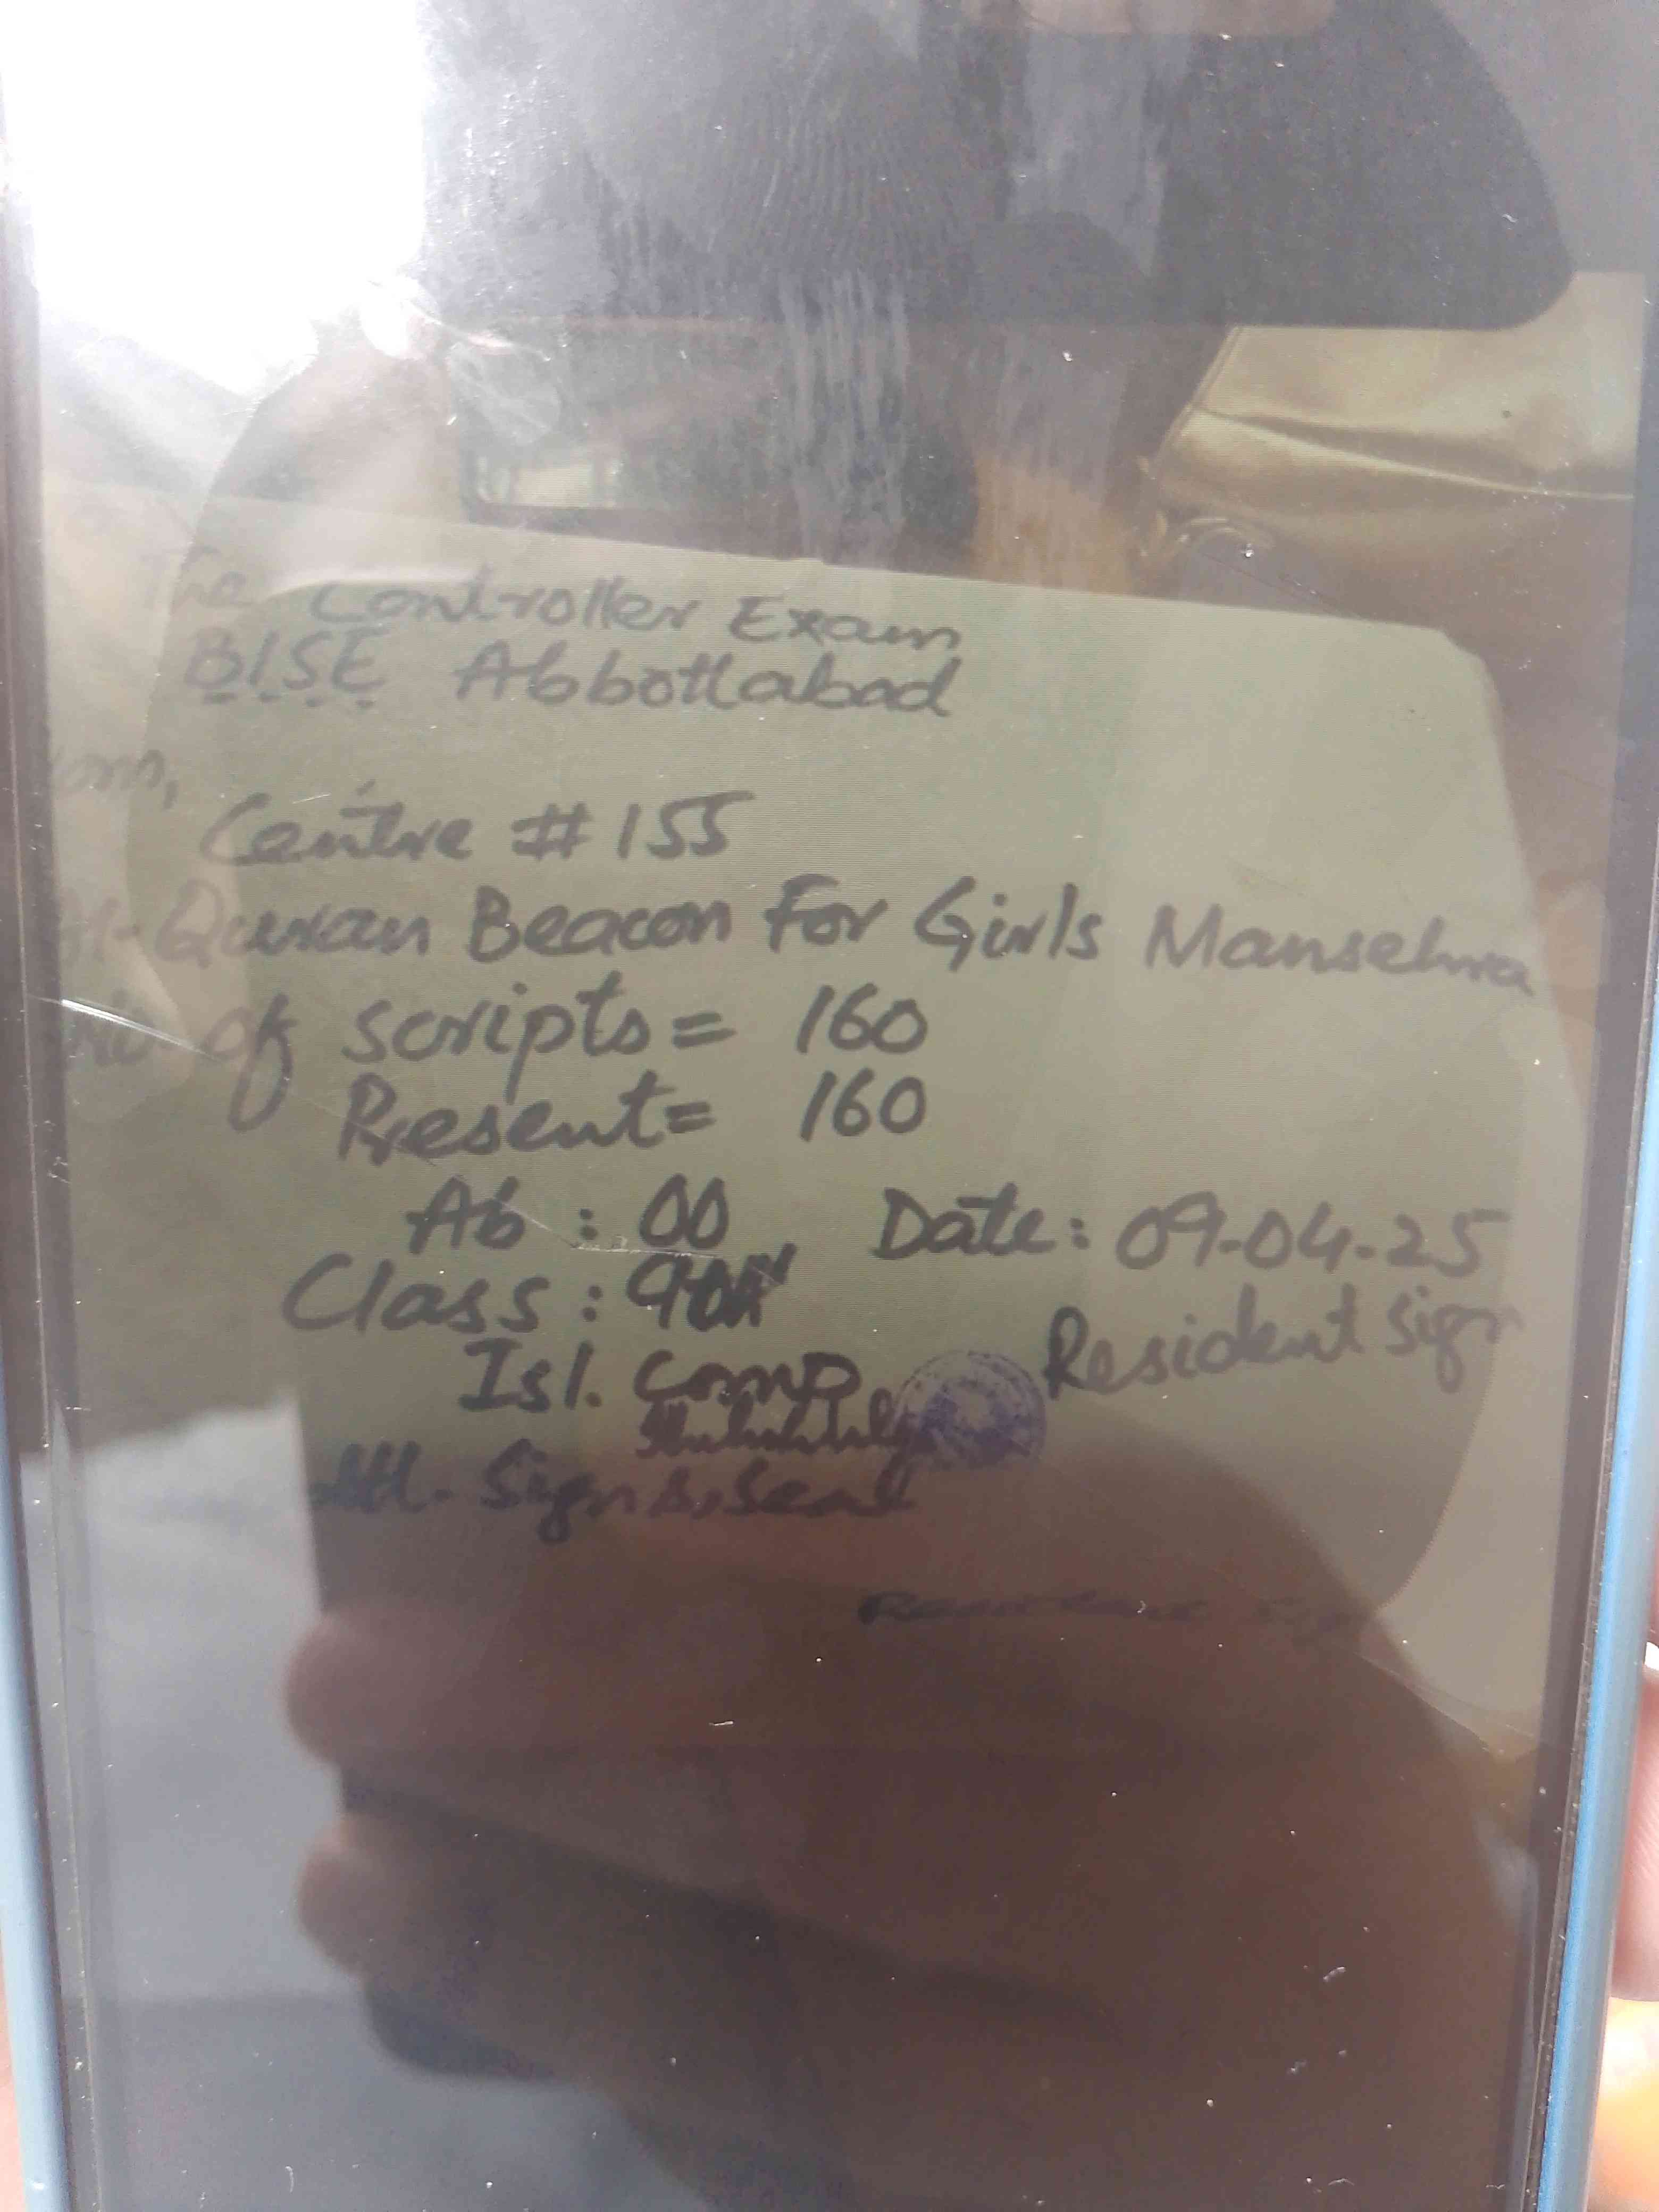 The Controller Exam
BISE Abbottabad
Centre # 155
Quran Beacon For Girls Mansehra
No of scripts = 160
Present = 160
Ab : 00 Date: 09-04-25
Class : 9th
Isl. Comp
Resident Sign
Sign & Seal